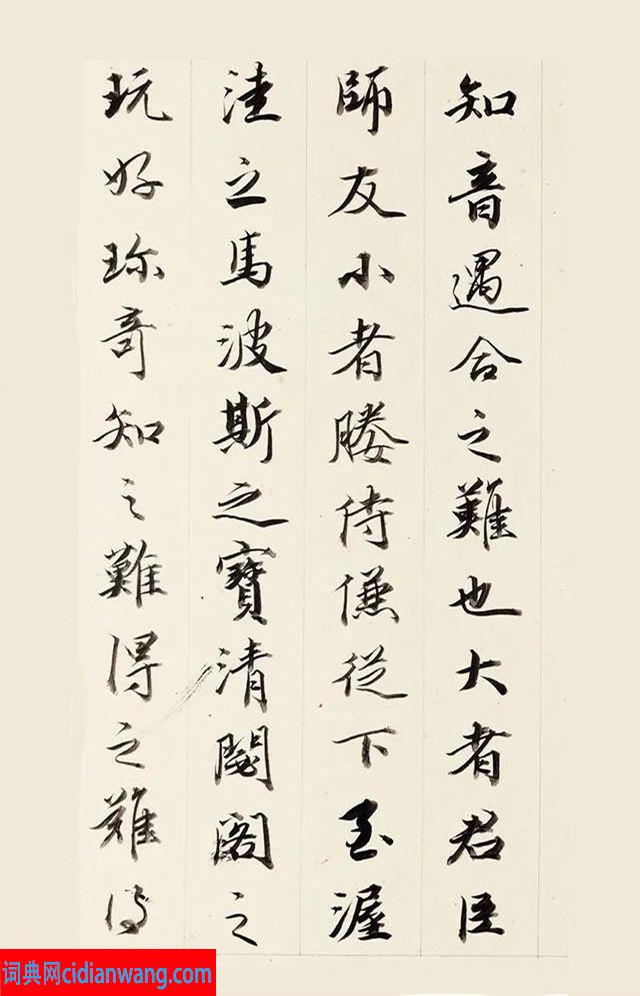 知音遇合之難也大者君臣
師友小者媵侍傔從下至渥
洼之馬波斯之寶清閟閣之
玩好珎奇知之難得之難傳
词典网cidianwang.com